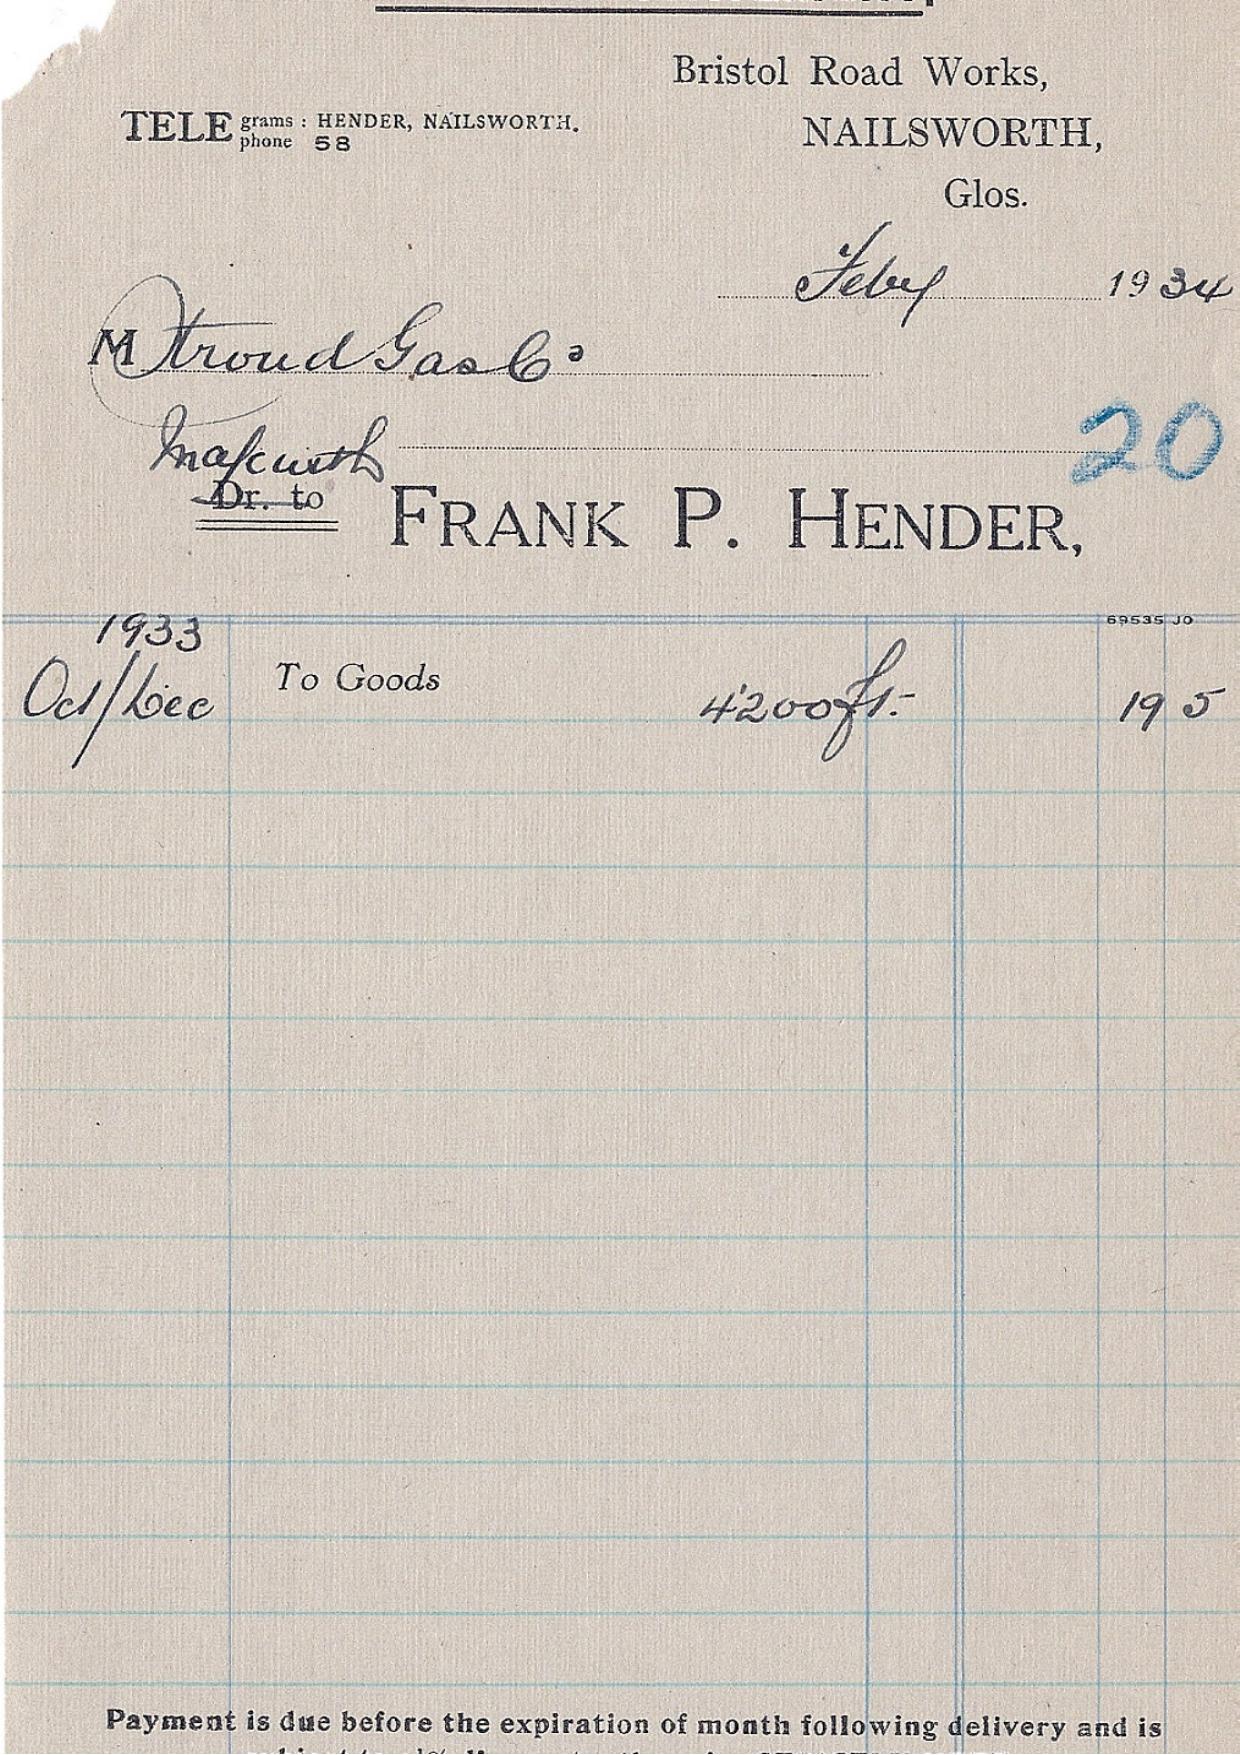 Bristol Road Works,
TELE grams : HENDER, NAILSWORTH.
phone 58
NAILSWORTH,
Glos.
Feby 1934
M Stroud Gas Co
20
Dr. to FRANK P. HENDER,
69535 JO
1933
Oct/Dec To Goods 4200 ft. 19 5
Payment is due before the expiration of month following delivery and is